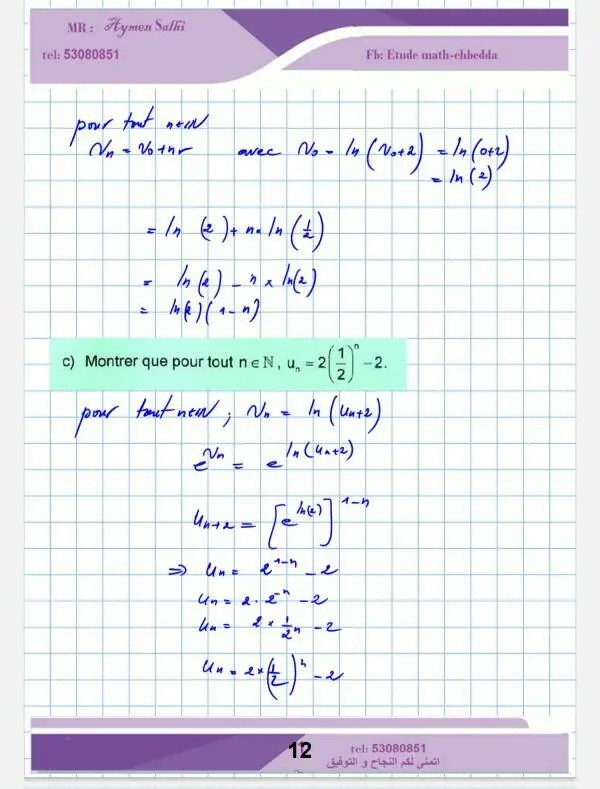 MR : Aymen Salhi
tel: 53080851
Fb: Etude math-chbedda
pour tout n∈ℕ
Vn = V0+nr avec V0 = ln(V0+2) = ln(0+2)
= ln(2)
= ln (2) + n × ln(1/2)
= ln(2) − n × ln(2)
= ln(2)(1−n)
c) Montrer que pour tout n ∈ ℕ, uₙ = 2(1/2)ⁿ − 2.
pour tout n∈ℕ ; Vn = ln(Un+2)
e^Vn = e^ln(Un+2)
Un+2 = [e^ln(2)]^1−n
⇒ Un = 2^1−n − 2
Un = 2 · 2^−n − 2
Un = 2 × 1/2^n − 2
Un = 2×(1/2)^n − 2
12
tel: 53080851
اتمنى لكم النجاح و التوفيق